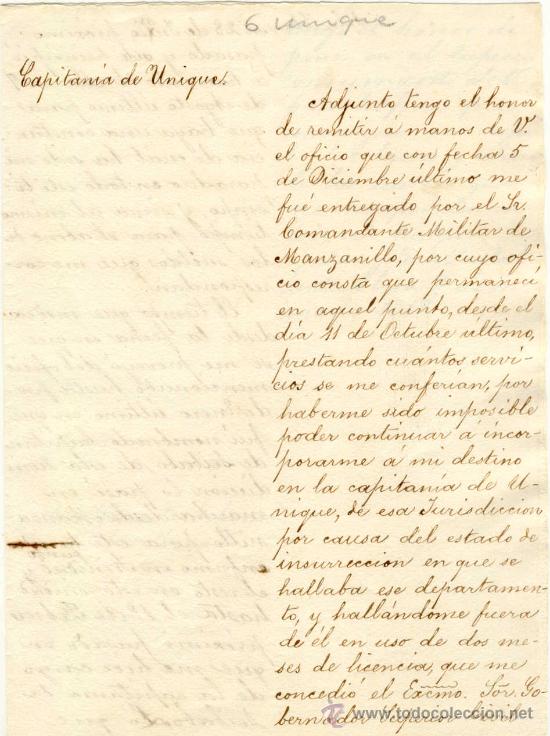 6 unique
Capitanía de Unique.
Adjunto tengo el honor
de remitir á manos de V.
el oficio que con fecha 5
de Diciembre último me
fué entregado por el Sr.
Comandante Militar de
Manzanillo, por cuyo ofi-
cio consta que permanecí
en aquel punto, desde el
día 11 de Octubre último,
prestando cuántos servi-
cios se me conferían, por
haberme sido imposible
poder continuar á incor-
porarme á mi destino
en la capitanía de U-
nique, de esa Jurisdiccion
por causa del estado de
insurreccion en que se
hallaba ese departamen-
to, y hallándome fuera
de él en uso de dos me-
ses de licencia, que me
concedió el Excmo. Sor. Go-
bernador Superior Civil
www.todocoleccion.net